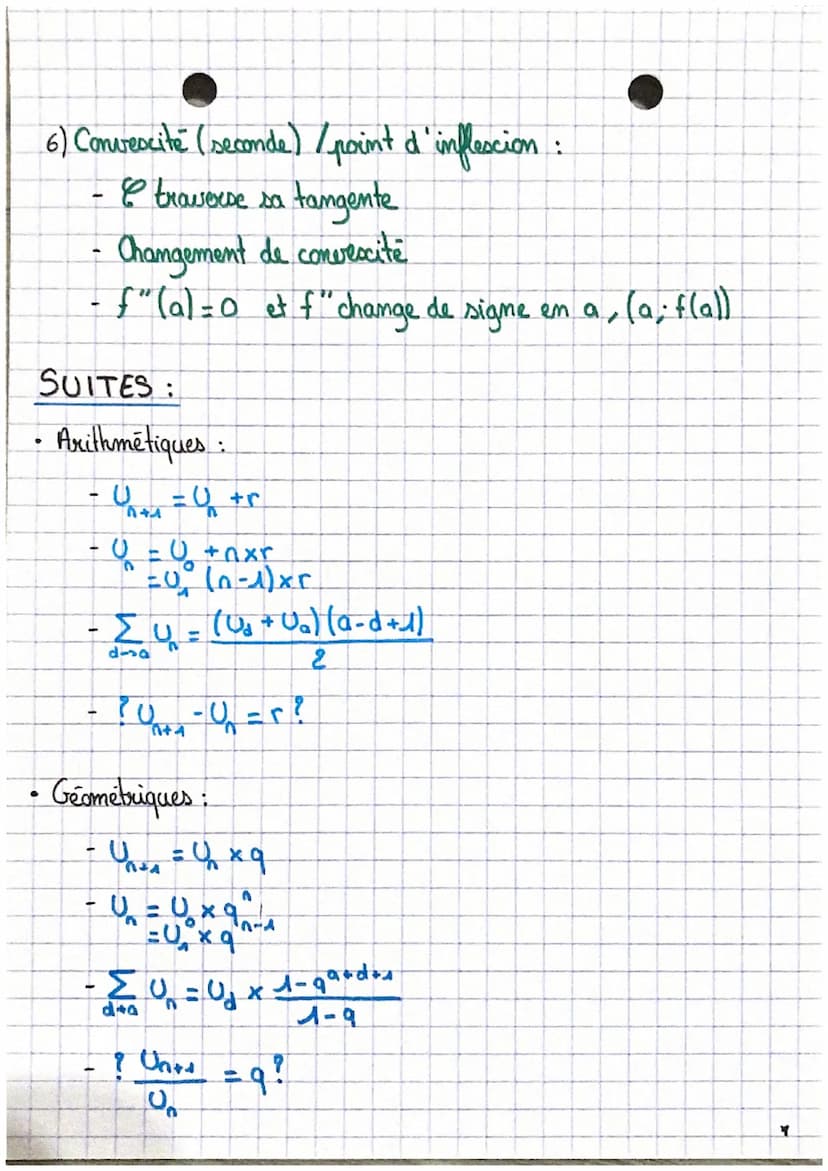 6) Convexité (seconde) / point d'inflexion :
- 𝒞 traverse sa tangente
- Changement de convexité
- f"(a)=0 et f" change de signe en a, (a; f(a))
SUITES :
• Arithmétiques :
- U_{n+1} = U_n + r
- U_n = U_0 + n×r
= U_1 (n-1)×r
- ∑_{d→a} U_n = \frac{(U_d + U_a)(a-d+1)}{2}
- ? U_{n+1} - U_n = r ?
• Géométriques :
- U_{n+1} = U_n × q
- U_n = U_0 × q^n
= U_1 × q^{n-1}
- ∑_{d→a} U_n = U_d × \frac{1-q^{a+d+1}}{1-q}
- ? \frac{U_{n+1}}{U_n} = q ?